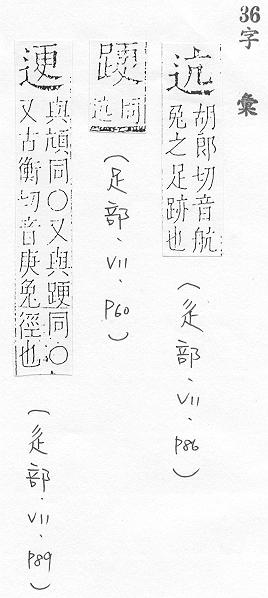 36字彙
迒
胡郎切音航
兔之足跡也
(辵部.VII.P86)
同
迒
(足部.VII.P60)
與頏同○又與同○
又古衡切音庚兔徑也
(辵部.VII.P89)